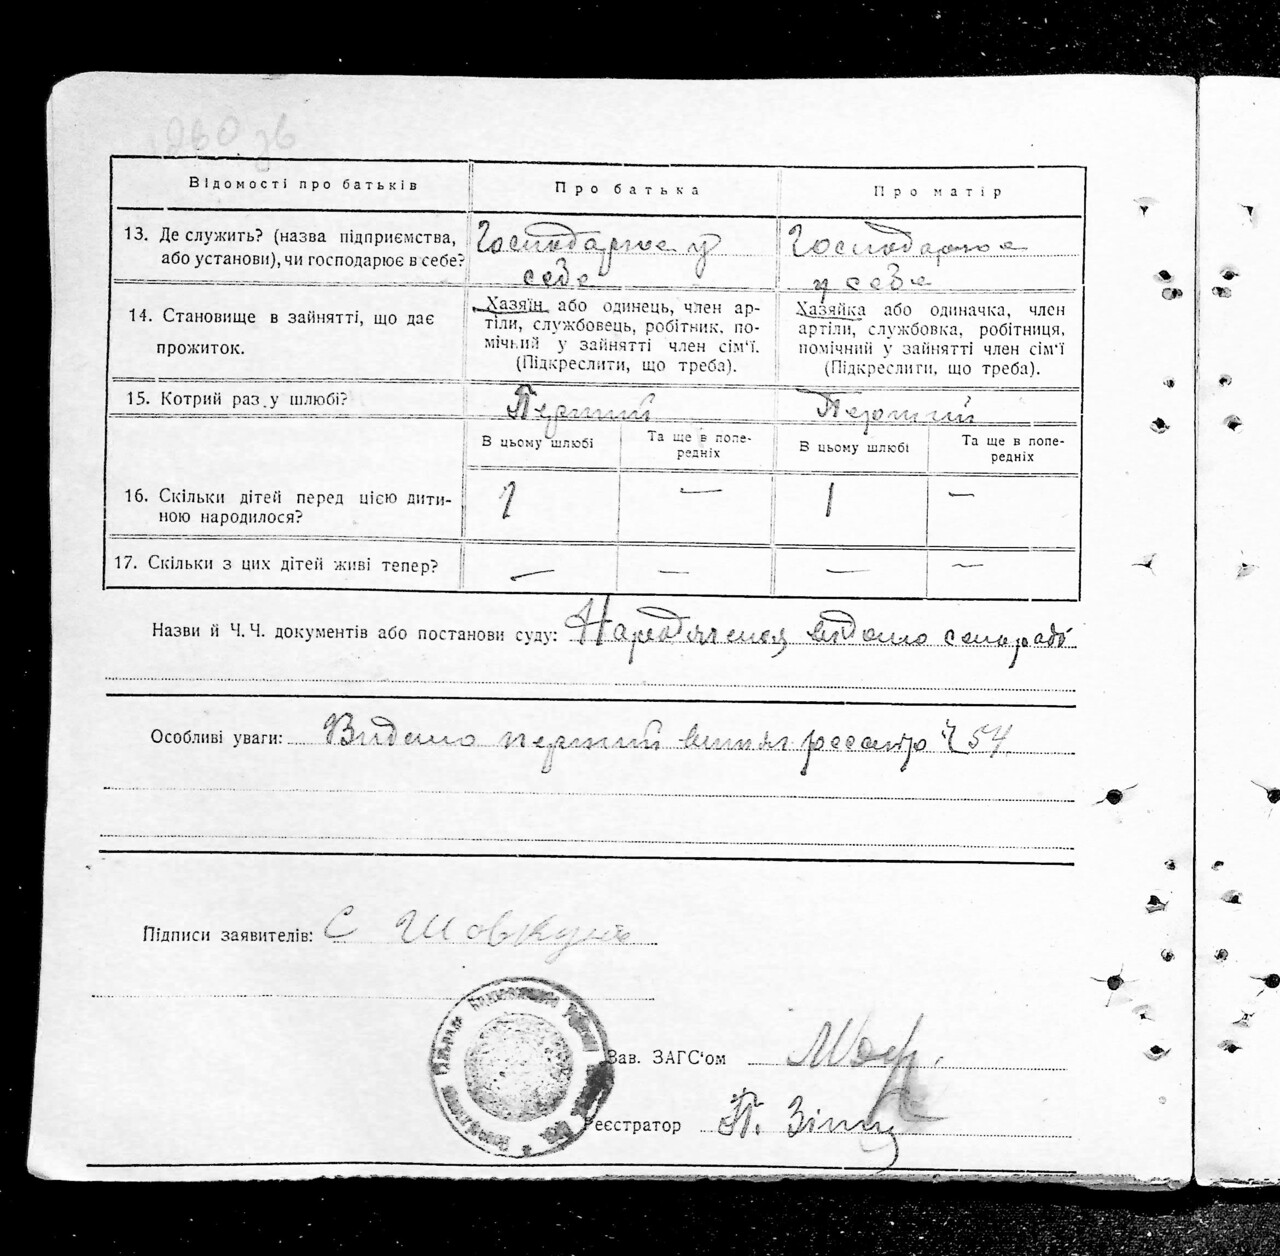 1260 зв
Відомості про батьків
Про батька
Про матір
13. Де служить? (назва підприємства,
або установи), чи господарює в себе?
Господарює у
себе
Господарює
у себе
14. Становище в зайнятті, що дає
прожиток.
Хазяїн або одинець, член ар-
тіли, службовець, робітник, по-
мічний у зайнятті член сім'ї.
(Підкреслити, що треба).
Хазяйка або одиначка, член
артіли, службовка, робітниця,
помічний у зайнятті член сім'ї
(Підкреслити, що треба).
15. Котрий раз у шлюбі?
Перший
Перший
В цьому шлюбі
Та ще в попе-
редніх
В цьому шлюбі
Та ще в попе-
редніх
16. Скільки дітей перед цією дити-
ною народилося?
1 — 1 —
17. Скільки з цих дітей живі тепер?
— — — —
Назви й Ч.Ч. документів або постанови суду:
Особливі уваги: Видано перший Ч 54
Підписи заявителів: С Шовкун
Зав. ЗАГС'ом
Реєстратор П.